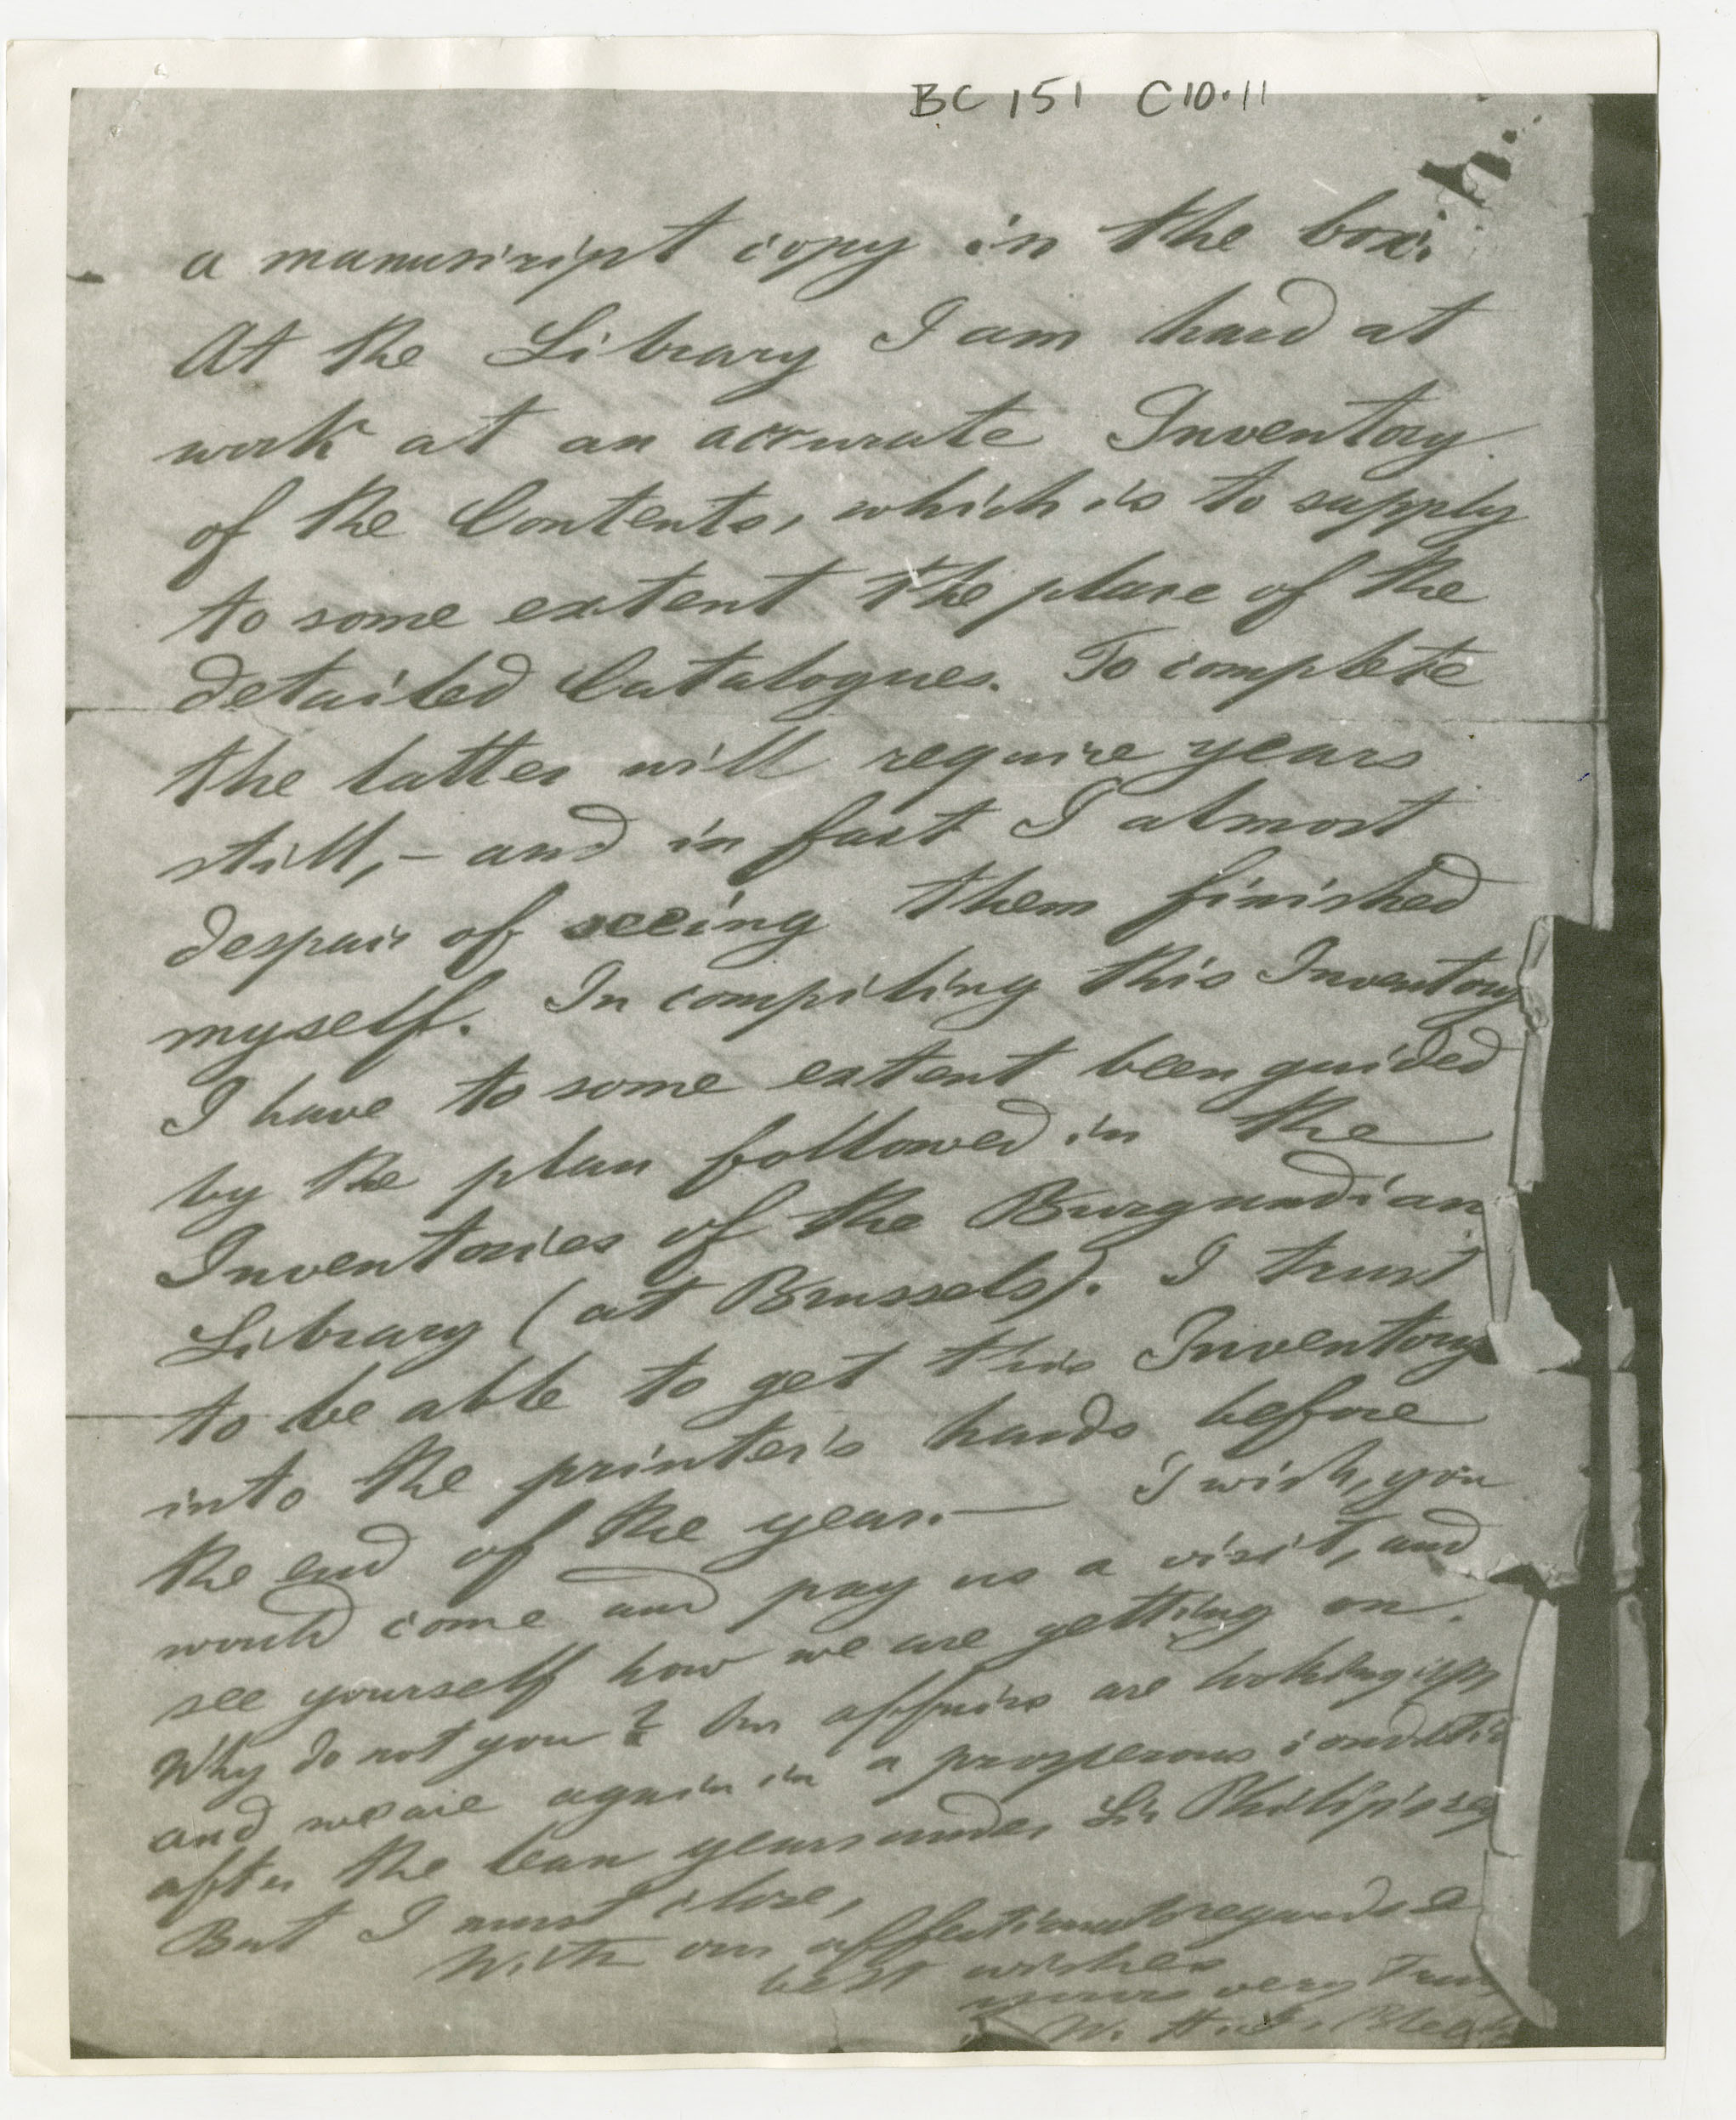 BC 151 C10.11
a manuscript copy in the box.
At the Library I am hard at
work at an accurate Inventory
of the Contents, which is to supply
to some extent the place of the
detailed Catalogues. To complete
the latter will require years
still, – and in fact I almost
despair of seeing them finished
myself. In compiling this Inventory
I have to some extent been guided
by the plan followed in the
Inventories of the Burgundian
Library (at Brussels). I trust
to be able to get this Inventory
into the printer's hands before
the end of the year. — I wish, you
would come and pay us a visit, and
see yourself how we are getting on.
Why do not you? Our affairs are looking up
and we are again in a prosperous conditio
after the lean years under Sir Philip's
But I must close,
With our affectionate regards &
best wishes
yours very
W. H. I. Bleek